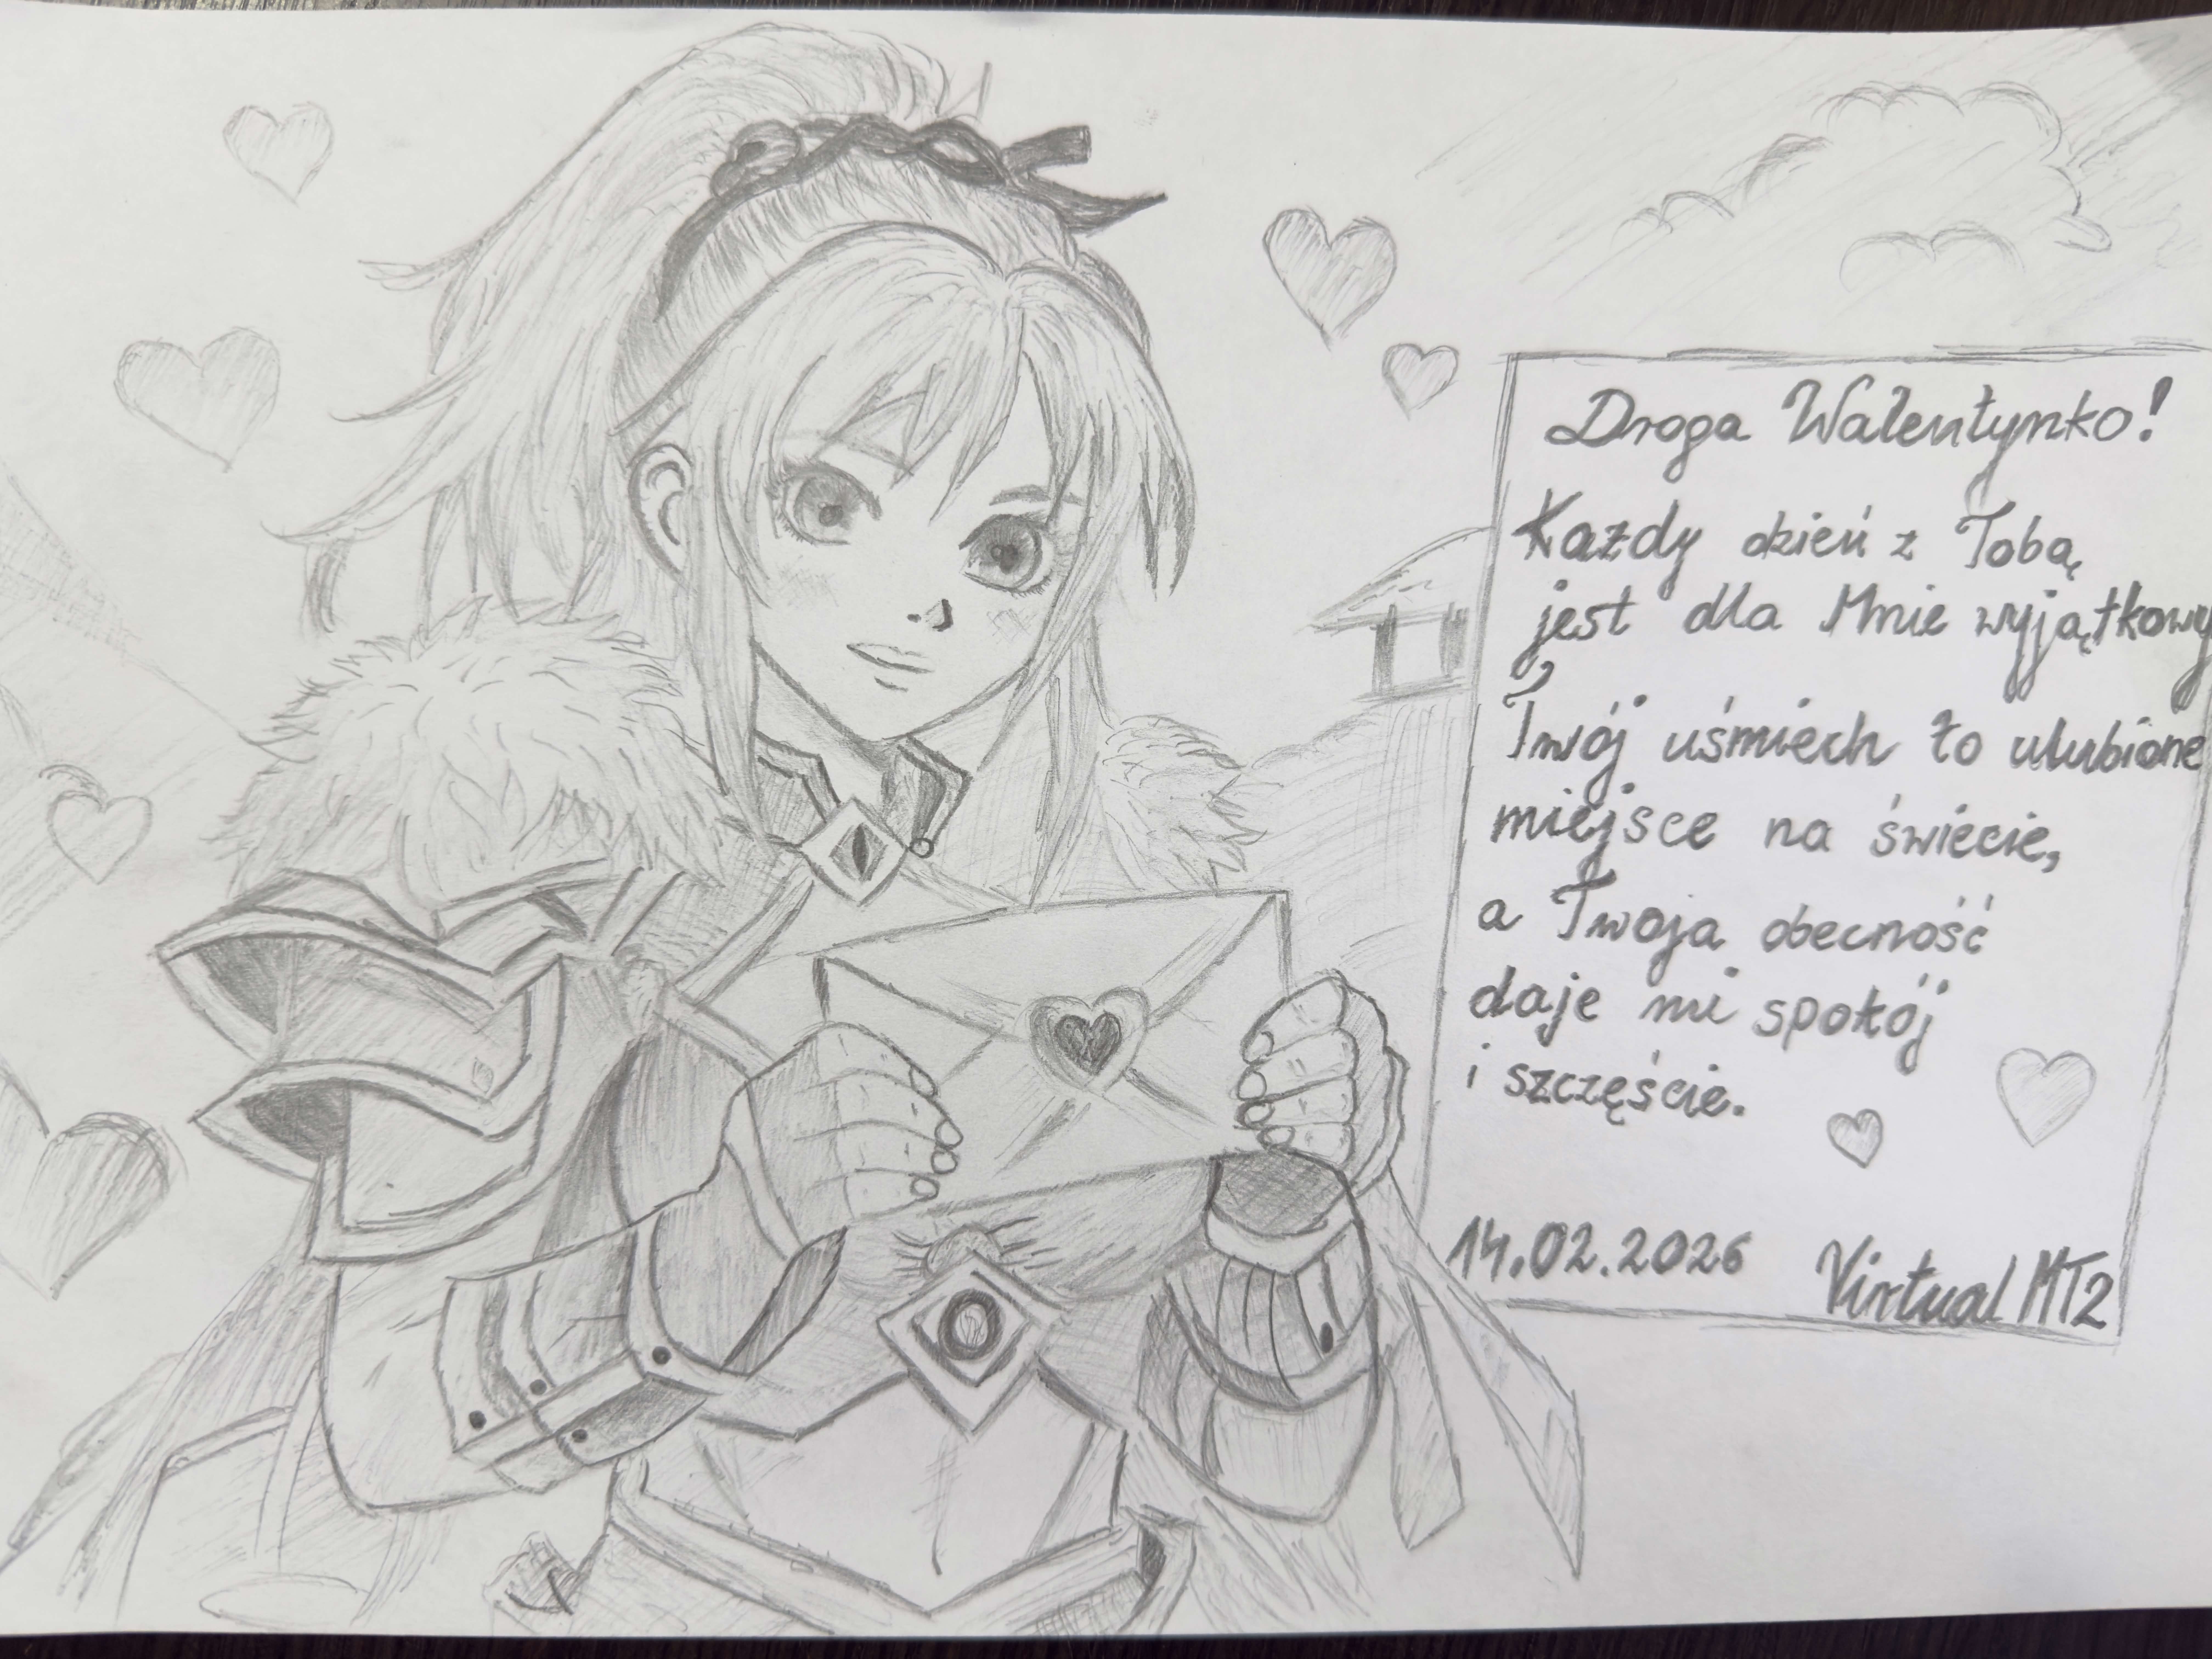 Droga Walentynko!
Każdy dzień z Tobą
jest dla Mnie wyjątkowy
Twój uśmiech to ulubione
miejsce na świecie,
a Twoja obecność
daje mi spokój
i szczęście.
14.02.2026 Virtual MT2